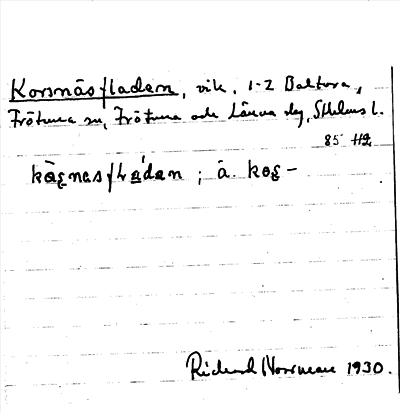 Korsnäsfladen, vik, 1-2 Baltora,
Frötuna sn, Frötuna och Länna slg, Sthlms l.
85 HQ
kàꞅnasfládan ; à. koꞅ-
Richard Norrman 1930.